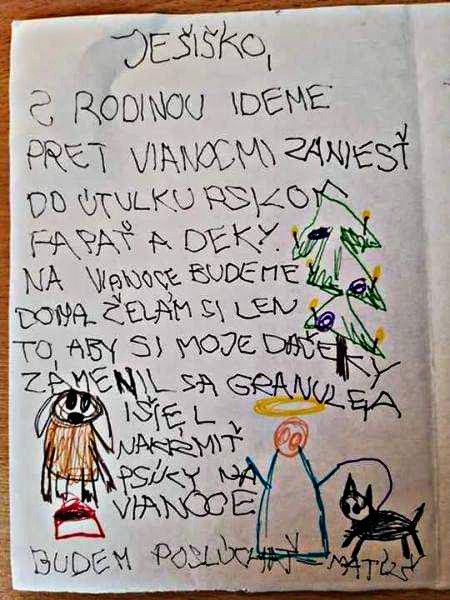 JEŠIŠKO,
Z RODINOU IDEME
PRET VIANOCMI ZANIESŤ
DO ÚTULKU PSIKOM
FAPAŤ A DEKY.
NA VIANOCE BUDEME
DOMA. ŽELÁM SI LEN
TO, ABY SI MOJE DAČEKY
ZAMENIL SA GRANULE A
IŠIEL
NAKRMIŤ
PSÍKY NA
VIANOCE
BUDEM POSLÚCHAŤ MATÚŠ